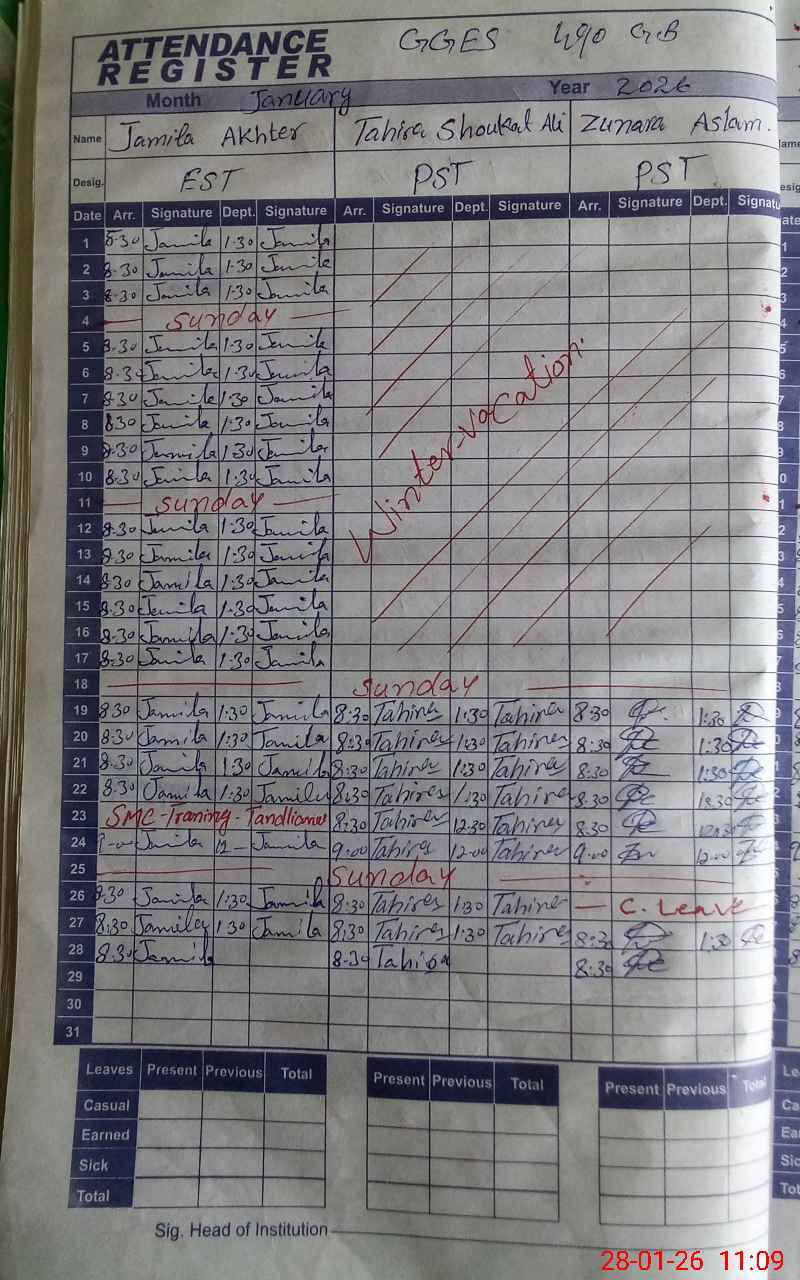 ATTENDANCE REGISTER
GGES 490 GB
Month January Year 2026
Name Jamila Akhter Tahira Shoukat Ali Zunara Aslam.
Desig. EST PST PST
Date Arr. Signature Dept. Signature Arr. Signature Dept. Signature Arr. Signature Dept. Signatu
1 8.30 Jamila 1.30 Jamila
2 8.30 Jamila 1.30 Jamila
3 8.30 Jamila 1.30 Jamila
4 Sunday
5 8.30 Jamila 1.30 Jamila
6 8.30 Jamila 1.30 Jamila
7 8.30 Jamila 1.30 Jamila
8 8.30 Jamila 1.30 Jamila
9 8.30 Jamila 1.30 Jamila
10 8.30 Jamila 1.30 Jamila
Winter-vocation.
11 Sunday
12 8.30 Jamila 1.30 Jamila
13 8.30 Jamila 1.30 Jamila
14 8.30 Jamila 1.30 Jamila
15 8.30 Jamila 1.30 Jamila
16 8.30 Jamila 1.30 Jamila
17 8.30 Jamila 1.30 Jamila
18 Sunday
19 8.30 Jamila 1.30 Jamila 8:30 Tahira 1:30 Tahira 8:30 1:30
20 8.30 Jamila 1.30 Jamila 8:30 Tahira 1:30 Tahira 8:30 1:30
21 8.30 Jamila 1.30 Jamila 8:30 Tahira 1:30 Tahira 8:30 1:30
22 8.30 Jamila 1.30 Jamila 8:30 Tahira 1:30 Tahira 8.30
23 SMC-Traning-Tandlianwa 8:30 Tahira 12:30 Tahira 8.30 12:30
24 Jamila 12- Jamila 9:00 Tahira 12:00 Tahira 9:00 12:00
25 Sunday
26 8.30 Jamila 1.30 Jamila 8:30 Tahira 1:30 Tahira — C. Leave
27 8.30 Jamila 1.30 Jamila 8:30 Tahira 1:30 Tahira 8:30 1:30
28 8.30 Jamila 8:30 Tahira 8:30
29
30
31
Leaves Present Previous Total Present Previous Total Present Previous Total
Casual
Earned
Sick
Total
Sig. Head of Institution
28-01-26 11:09